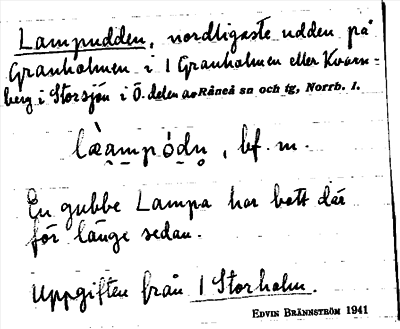 Lampudden, nordligaste udden på
Granholmen i 1 Granholmen eller Kvarn-
berg i Storsjön i Ö. delen av Råneå sn och tg, Norrb. l.
bf. m.
En gubbe Lampa har bott där
för länge sedan.
Uppgiften från 1 Storholm.
EDVIN BRÄNNSTRÖM 1941